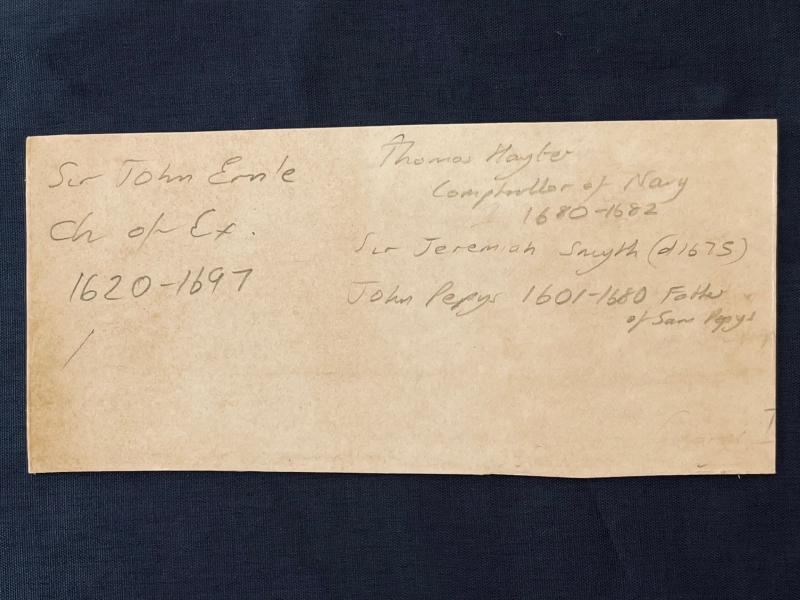 Sir John Ernle
Ch of Ex.
1620-1697
Thomas Hayter
Comptroller of Navy
1680-1682
Sir Jeremiah Smyth (d1675)
John Pepys 1601-1680 Father
of Sam Pepys